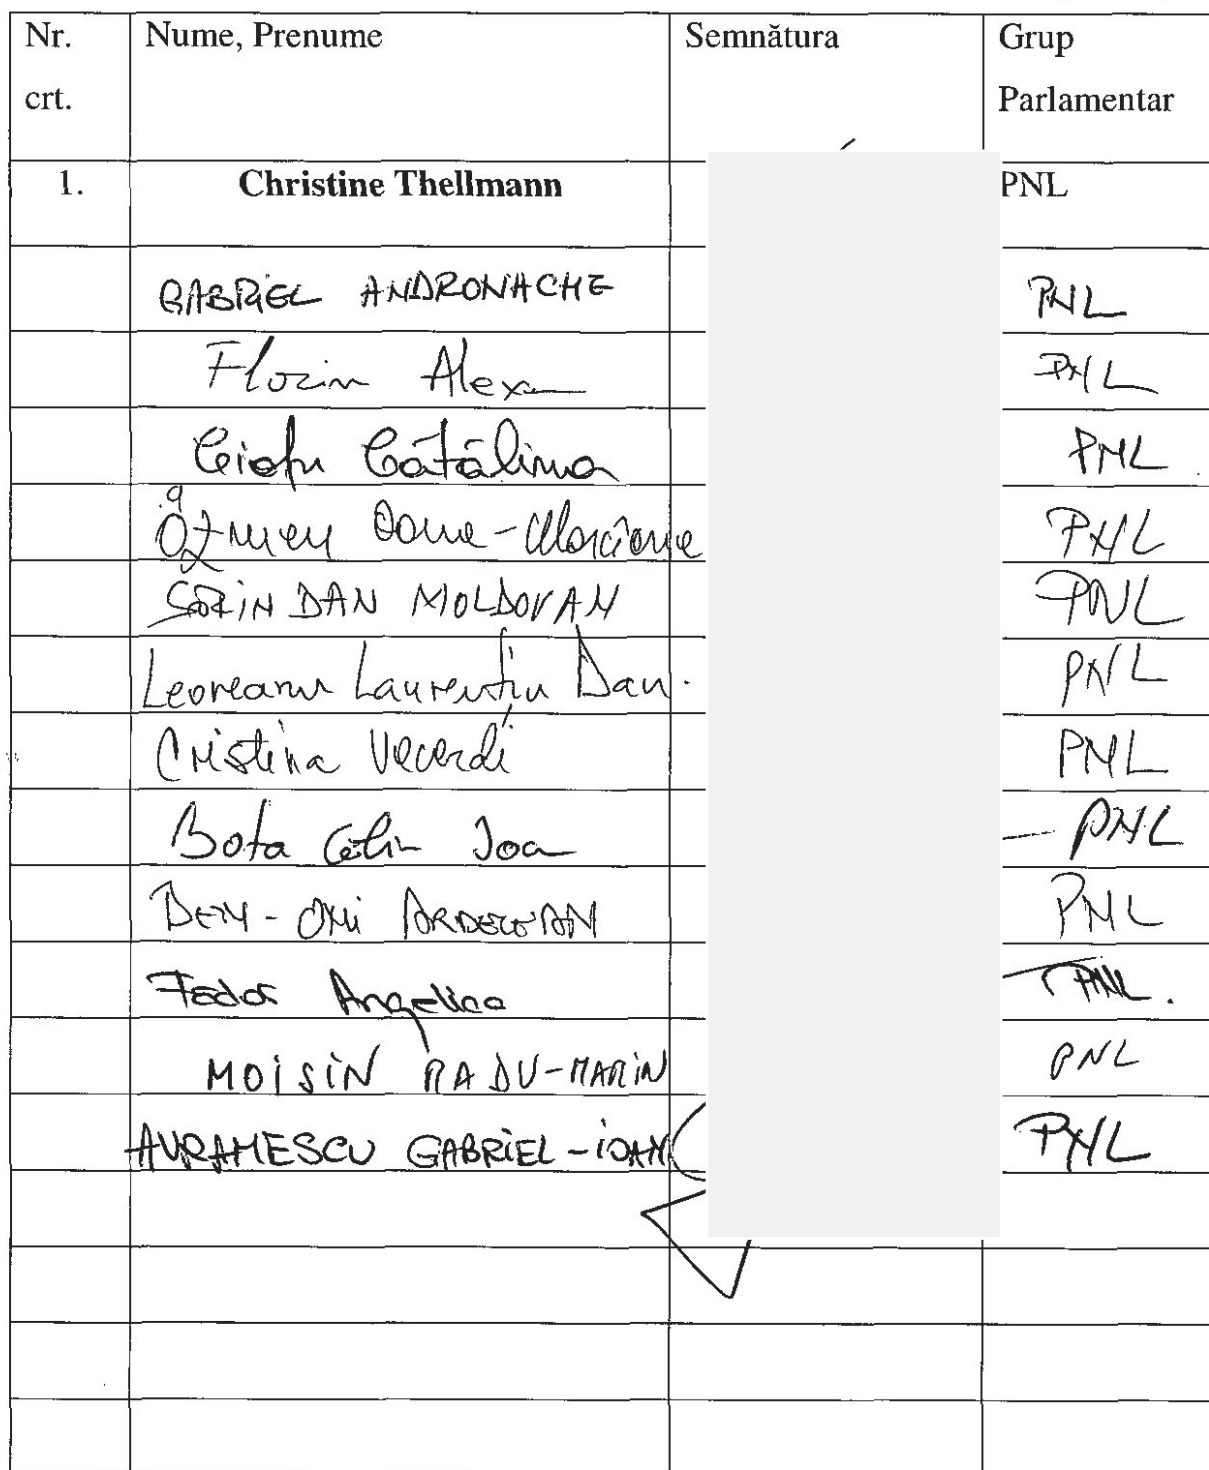 Nr. crt. Nume, Prenume Semnătura Grup Parlamentar
1. Christine Thellmann PNL
GABRIEL ANDRONACHE PNL
Florin Alexe PNL
Ciofu Cătălina PNL
Özmen Oana-Marciana PNL
SORIN DAN MOLDOVAN PNL
Leoreanu Laurentiu Dan. PNL
Cristina Vecerdi PNL
Bota Călin Ioa PNL
BEN-ONI ARDELEAN PNL
Fador Angelica PNL.
MOISIN RADU-MARIN PNL
AVRAMESCU GABRIEL-IOAN PNL